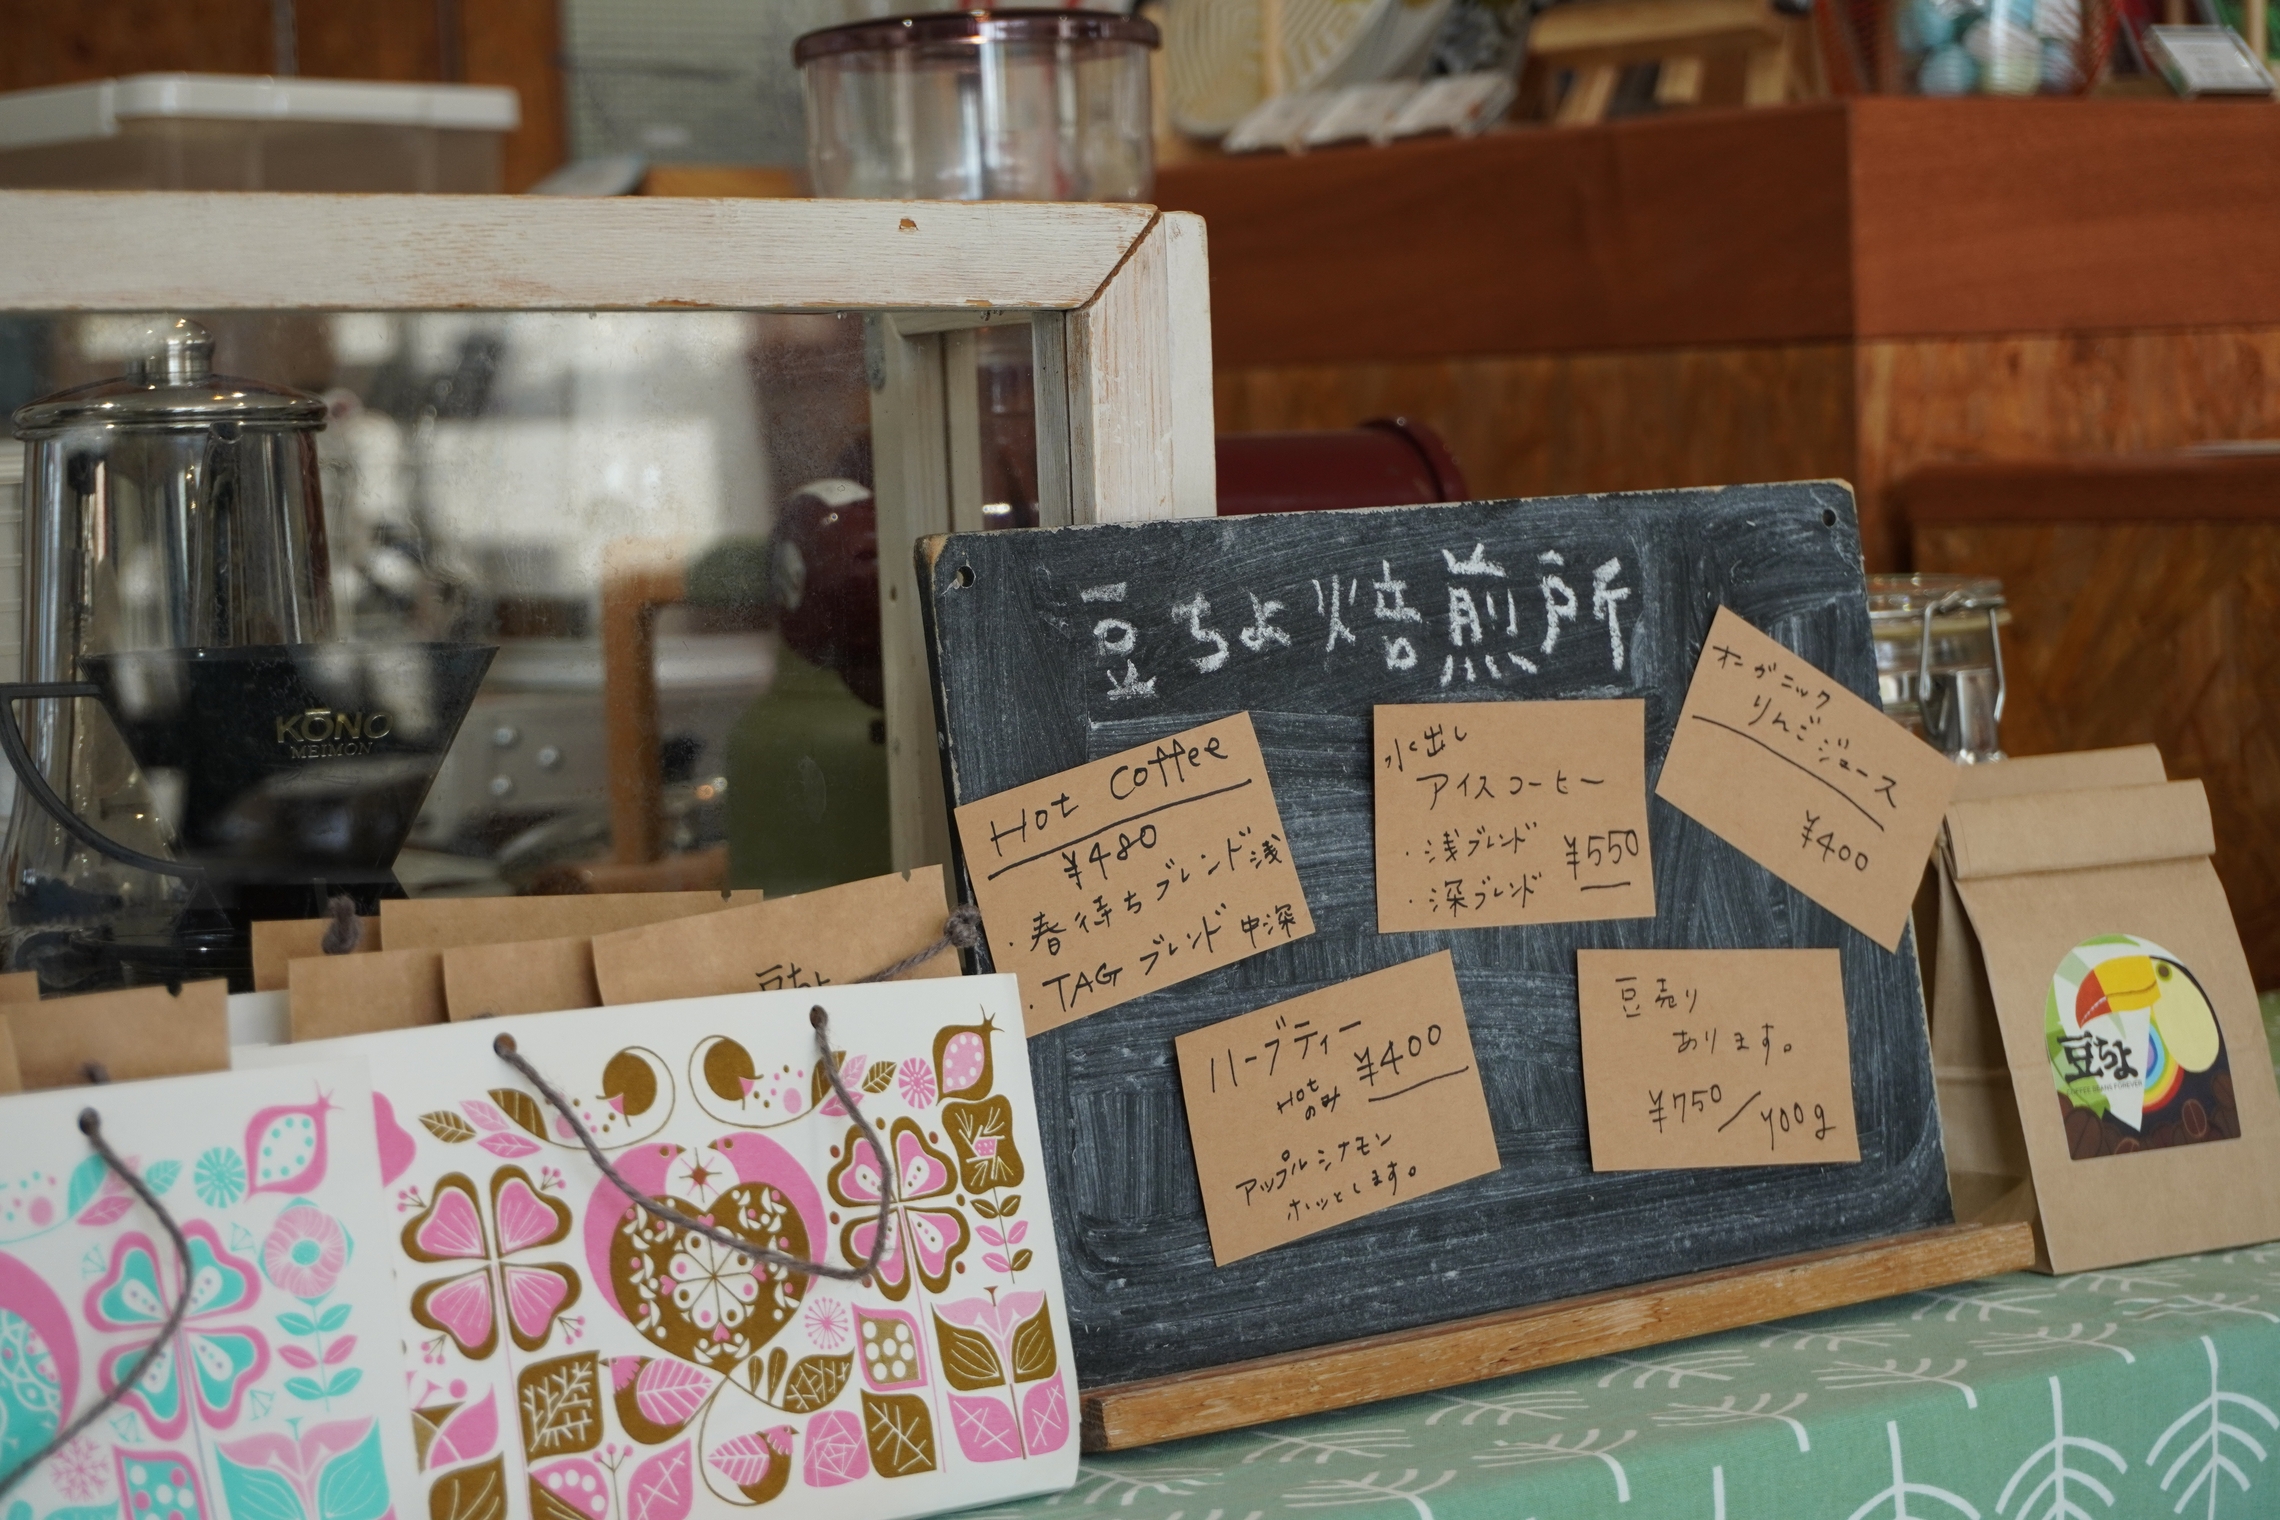 豆ちよ焙煎所
Hot Coffee
¥480
・春待ちブレンド浅
・TAG ブレンド 中深
水出し
アイスコーヒー
・浅ブレンド
・深ブレンド
¥550
オーガニック
りんごジュース
¥400
ハーブティー
Hot
のみ
¥400
アップルシナモン
ホッとします。
豆売り
あります。
¥750/100g
KŌNO
MEIMON
豆ちよ
豆ちよ
COFFEE BEANS FOREVER